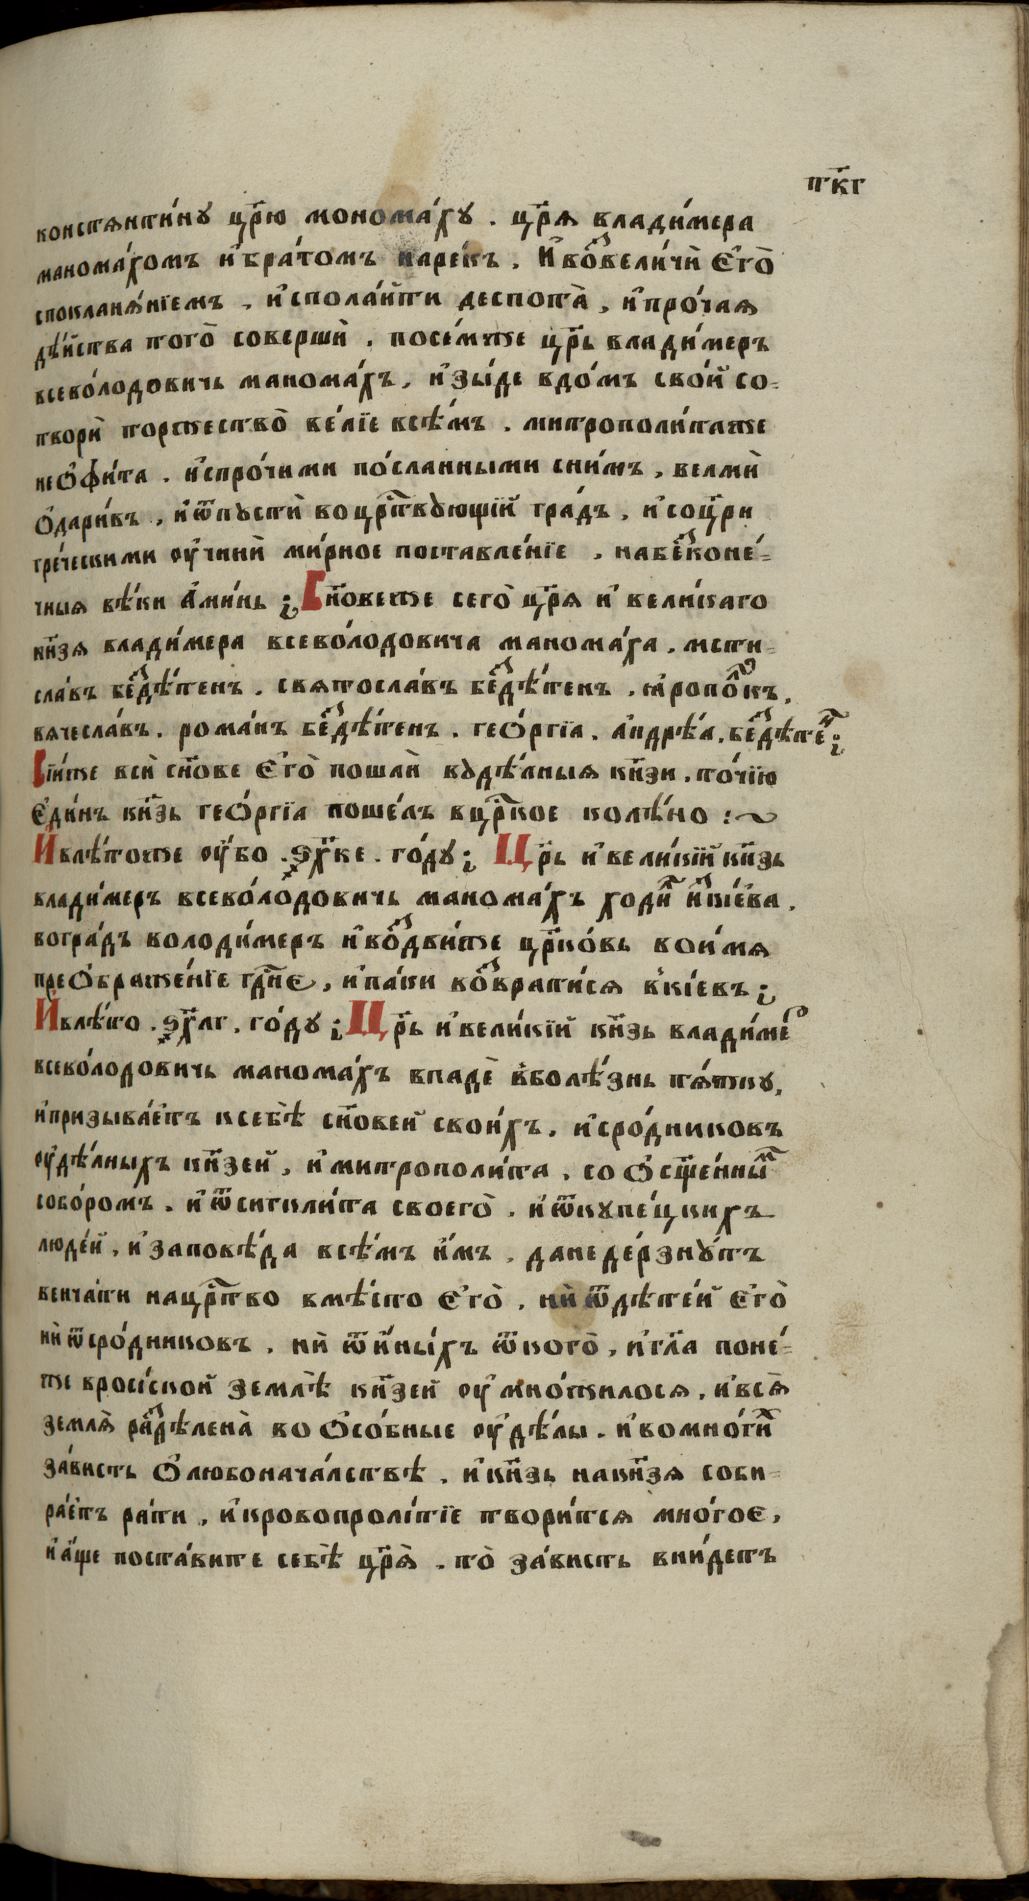 тк҃г
констянти́ну цр҃ю монома́ху . цр҃я влади́мера
манома́хомъ и҆бра́томъ наре́къ . И҆воⷥвели́чѝ Є҆го̀
спокланя́нїемъ , и҆спола́йти деспота̀ , и҆про́чая
дѣ́йства того̀ совершѝ . посе́мже цр҃ь влади́меръ
всево́лодовичь манома́хъ , и҆зы́де вдо́мъ сво́й со-
творѝ торжество̀ ве́лїе всѣ́мъ . митрополи́таже
неѺфи́та . и҆спро́чими по́сланными сни́мъ , велмѝ
ѻ҆дари́въ , и҆ѿпꙋстѝ воцрⷭ҇твꙋющїй гра́дъ , и҆соцр҃и
гре́ческими ᲂу҆чинѝ ми́рное поставле́нїе , набеⷥконе́-
чныя вѣ́ки а҆ми́нь ; Сн҃овеже сего̀ цр҃я и҆ вели́каго
кн҃зя влади́мера всево́лодовича манома́ха . мсти-
сла́въ беⷥдѣ́тенъ . святосла́въ беⷥдѣ́тенъ . ꙗ҆ропоⷧ҇къ ,
вячесла́въ . рома́нъ беⷥдѣ́тенъ . геѺ́ргїа . а҆ндрѣ́а . беⷥдѣ́теⷩ҇ ;
Сїи́же всѝ сн҃ове Є҆го̀ пошлѝ вꙋдѣ́лныя кн҃зи . то́чїю
є҆ди́нъ кн҃зь геѺ́ргїа поше́лъ вцрⷭ҇кое колѣ́но :~
И҆влѣ́тоже ᲂу҆́бо . ҂ѕ҃хке . го́дꙋ ; Цр҃ь и҆вели́кїй кн҃зь
влади́меръ всево́лодовичь манома́хъ ходиⷧ҇ иⷥкі́ева .
вогра́дъ володи́меръ и҆воⷥдви́же црⷪ҇ко́вь вои́мя
преѺбраже́нїе гдⷭ҇нє , и҆па́ки воⷥврати́ся вкі́евъ ;
И҆влѣ́то . ҂ѕ҃хлг . го́дꙋ ; Цр҃ь и҆вели́кїй кн҃зь влади́меⷬ҇
всево́лодовичь манома́хъ впадѐ вболѣ́знь тя́жкꙋ ,
и҆призыва́етъ ксебѣ̀ сн҃овей свои́хъ . и҆сро́дниковъ
ᲂу҆дѣ́лныхъ кн҃зей , и҆митрополи́та , со Ѻ҆сщ҃е́нныⷨ҇
собо́ромъ . и҆ѿсигкли́та своего̀ . и҆ѿкꙋпе́цкихъ
люде́й , и҆заповѣ́да всѣ́мъ и҆́мъ , данеде́рзнꙋтъ
венча́ти нацрⷭ҇тво вмѣ́сто Є҆го̀ , нѝ ѿдѣте́й Є҆го̀
нѝ ѿсро́дниковъ , нѝ ѿи҆ны́хъ ѿкого̀ , и҆гл҃а поне́-
же вросі́ской землѣ̀ кн҃зей ᲂу҆мно́жилося , и҆вся̀
земля̀ раⷥдѣлена̀ во Ѻ҆со́бные ᲂу҆дѣ́лы . и҆вомно́гиⷯ
за́висть Ѻ҆любонача́лствѣ , и҆кн҃зь накн҃зя соби-
ра́етъ ра́ти , и҆кровопролі́тїе твори́тся мно́гоє ,
и҆а҆́ще поста́вите себѣ̀ цр҃я̀ . то̀ за́висть вни́детъ